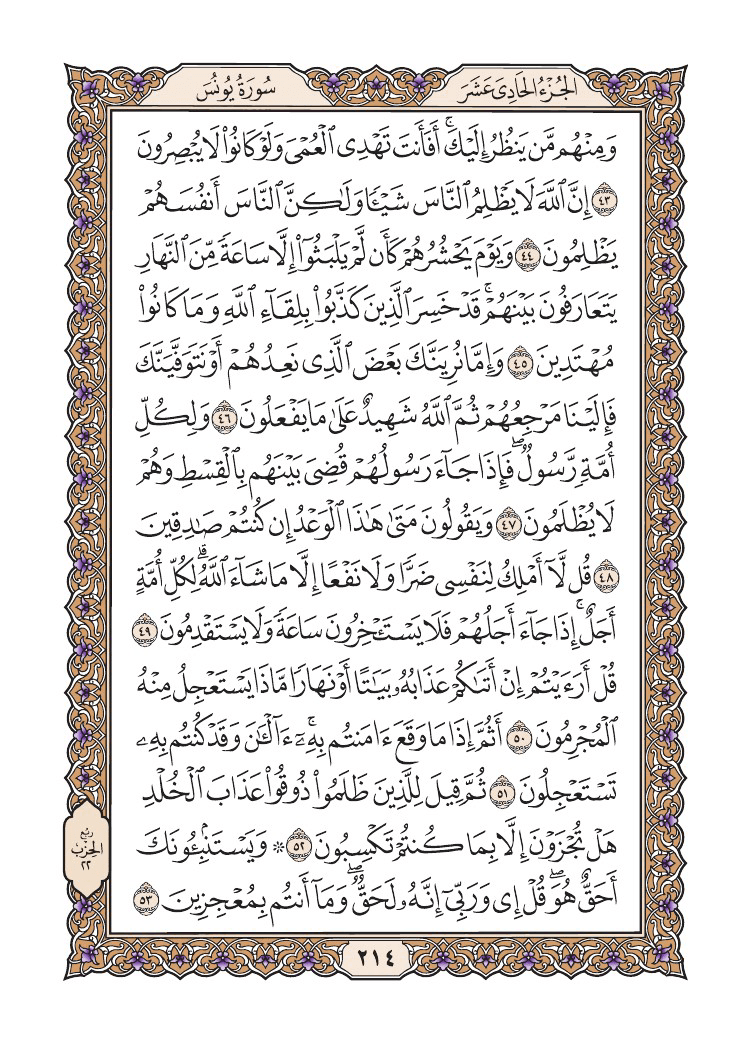 الجُزْءُ الحَادِى عَشَرَ
سُورَةُ يُونُسَ
وَمِنْهُم مَّن يَنظُرُ إِلَيْكَۚ أَفَأَنتَ تَهْدِى ٱلْعُمْىَ وَلَوْ كَانُوا۟ لَا يُبْصِرُونَ
٤٣ إِنَّ ٱللَّهَ لَا يَظْلِمُ ٱلنَّاسَ شَيْـًٔا وَلَـٰكِنَّ ٱلنَّاسَ أَنفُسَهُمْ
يَظْلِمُونَ ٤٤ وَيَوْمَ يَحْشُرُهُمْ كَأَن لَّمْ يَلْبَثُوٓا۟ إِلَّا سَاعَةً مِّنَ ٱلنَّهَارِ
يَتَعَارَفُونَ بَيْنَهُمْۚ قَدْ خَسِرَ ٱلَّذِينَ كَذَّبُوا۟ بِلِقَآءِ ٱللَّهِ وَمَا كَانُوا۟
مُهْتَدِينَ ٤٥ وَإِمَّا نُرِيَنَّكَ بَعْضَ ٱلَّذِى نَعِدُهُمْ أَوْ نَتَوَفَّيَنَّكَ
فَإِلَيْنَا مَرْجِعُهُمْ ثُمَّ ٱللَّهُ شَهِيدٌ عَلَىٰ مَا يَفْعَلُونَ ٤٦ وَلِكُلِّ
أُمَّةٍ رَّسُولٌۖ فَإِذَا جَآءَ رَسُولُهُمْ قُضِىَ بَيْنَهُم بِٱلْقِسْطِ وَهُمْ
لَا يُظْلَمُونَ ٤٧ وَيَقُولُونَ مَتَىٰ هَـٰذَا ٱلْوَعْدُ إِن كُنتُمْ صَـٰدِقِينَ
٤٨ قُل لَّآ أَمْلِكُ لِنَفْسِى ضَرًّا وَلَا نَفْعًا إِلَّا مَا شَآءَ ٱللَّهُۗ لِكُلِّ أُمَّةٍ
أَجَلٌۚ إِذَا جَآءَ أَجَلُهُمْ فَلَا يَسْتَـْٔخِرُونَ سَاعَةً وَلَا يَسْتَقْدِمُونَ ٤٩
قُلْ أَرَءَيْتُمْ إِنْ أَتَىٰكُمْ عَذَابُهُۥ بَيَـٰتًا أَوْ نَهَارًا مَّاذَا يَسْتَعْجِلُ مِنْهُ
ٱلْمُجْرِمُونَ ٥٠ أَثُمَّ إِذَا مَا وَقَعَ ءَامَنتُم بِهِۦٓۚ ءَآلْـَٔـٰنَ وَقَدْ كُنتُم بِهِۦ
تَسْتَعْجِلُونَ ٥١ ثُمَّ قِيلَ لِلَّذِينَ ظَلَمُوا۟ ذُوقُوا۟ عَذَابَ ٱلْخُلْدِ
هَلْ تُجْزَوْنَ إِلَّا بِمَا كُنتُمْ تَكْسِبُونَ ٥٢ ۞ وَيَسْتَنۢبِـُٔونَكَ
أَحَقٌّ هُوَۖ قُلْ إِى وَرَبِّىٓ إِنَّهُۥ لَحَقٌّۖ وَمَآ أَنتُم بِمُعْجِزِينَ ٥٣
ربع
الحزب
٢٢
٢١٤